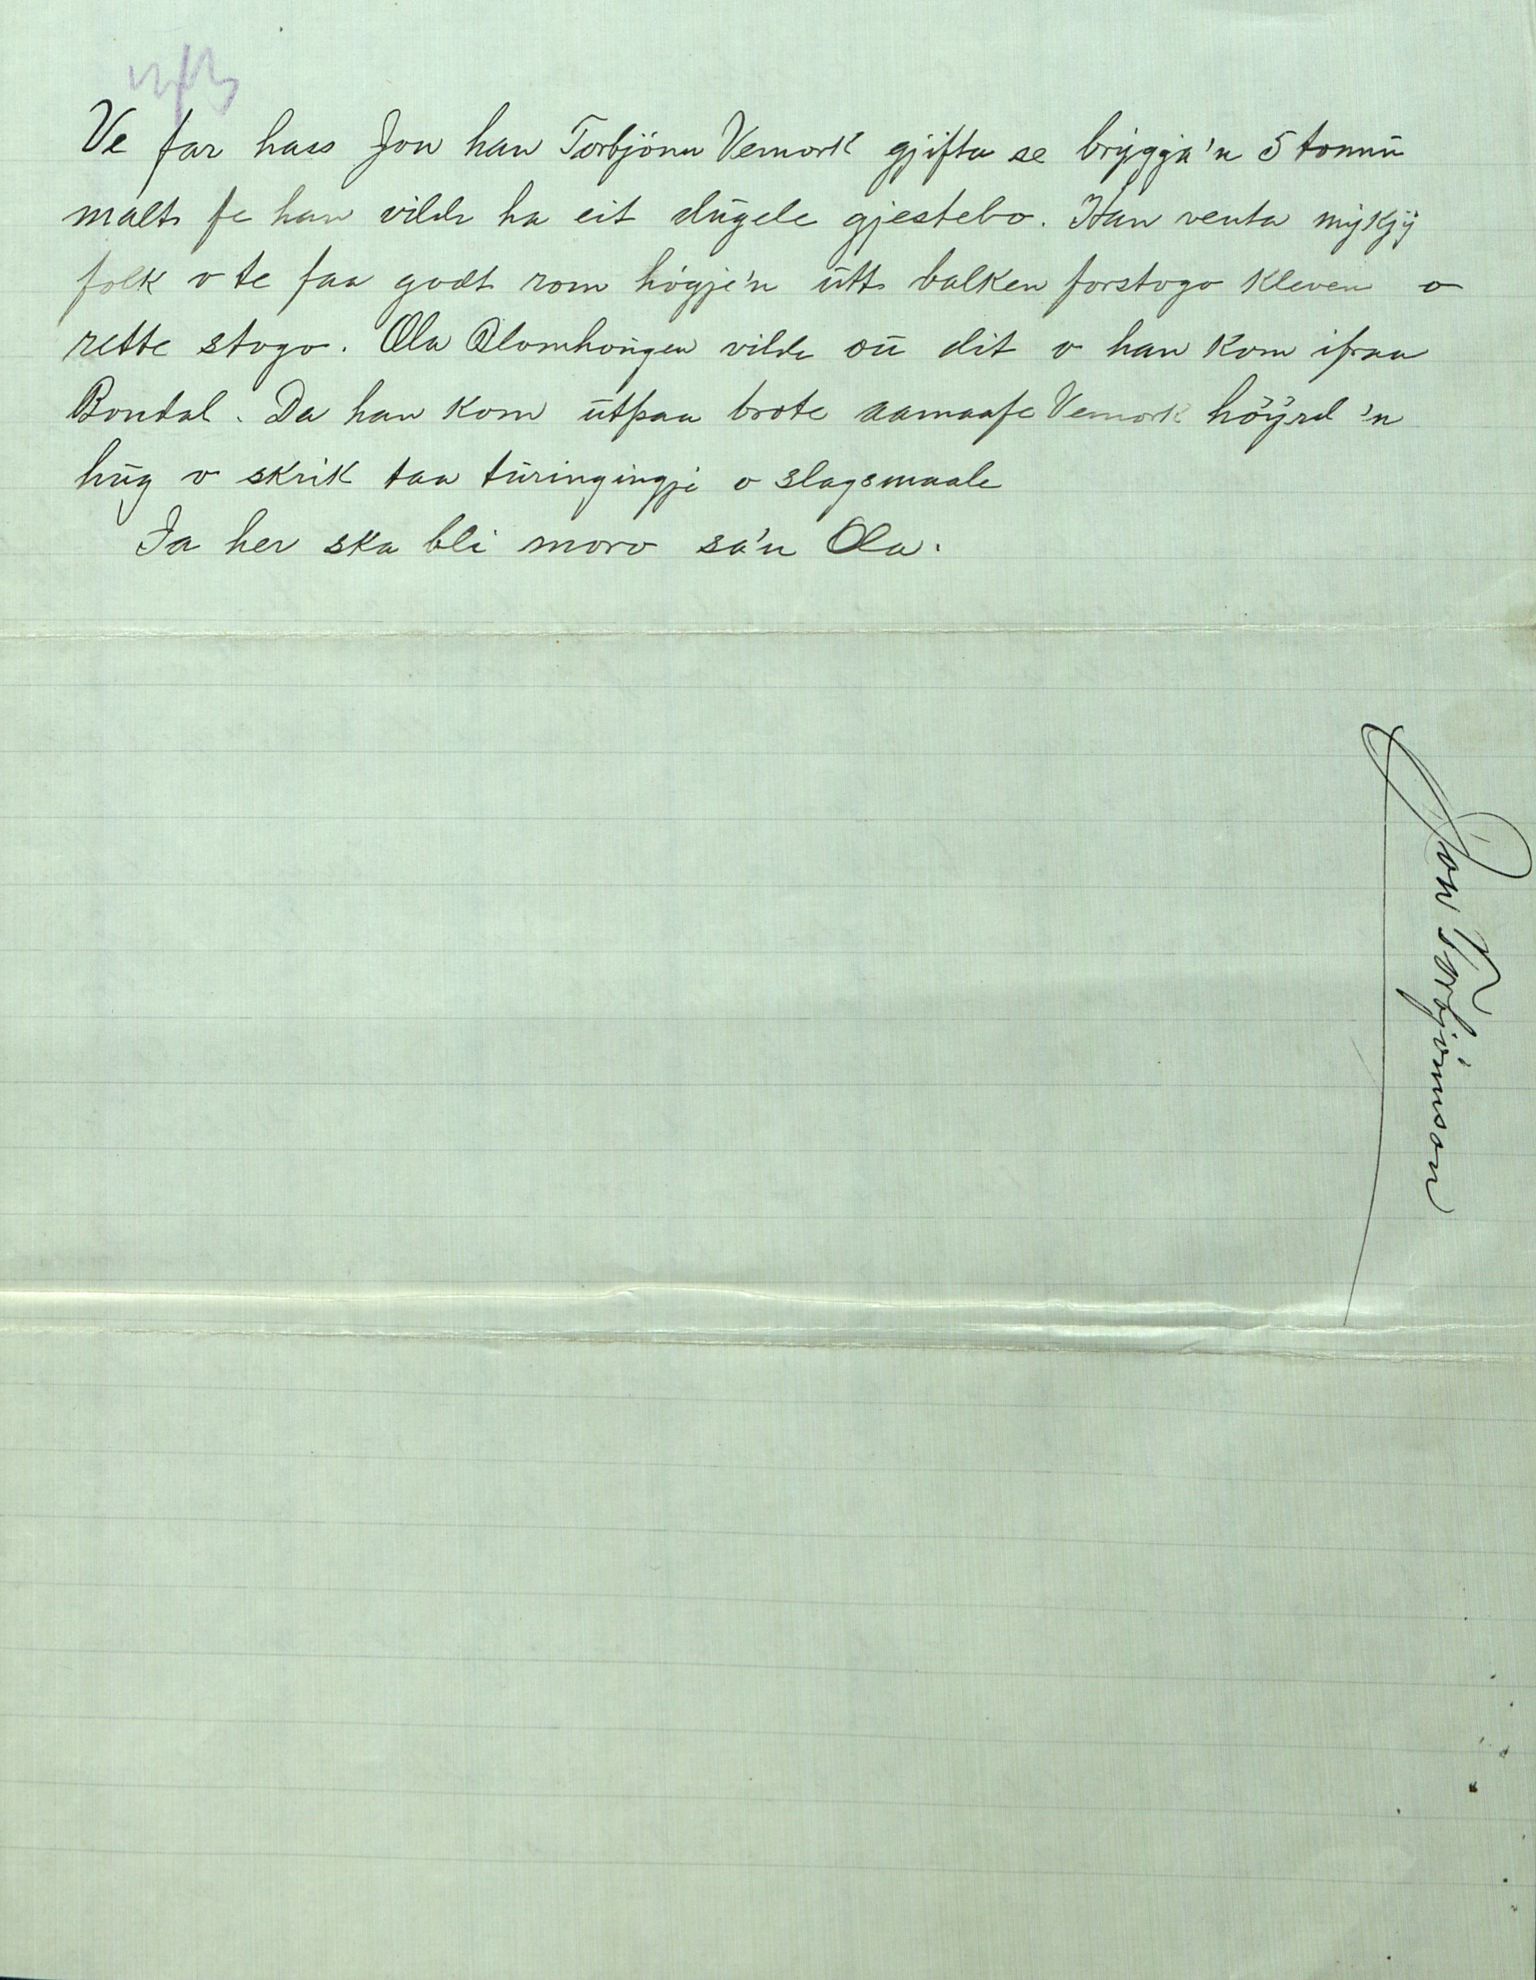 Ve far hass Jon han Torbjönn Vemork gjifta se bryggja'n 5 tonnu
malt fe han vilde ha eit dugele gjestebo. Han venta mykjy
folk o te faa godt rom högje'n utt balken forstogo kleven o
rette stogo. Ola Blomhougen vilde ou dit o han kom ifraa
Bondal. Da han kom utpaa brote aamaafe Vemork höyrd 'n
hug o skrik taa turingingji o slagsmaale
Ja her ska bli moro sa'n Ola.
Jon Torbjönnson